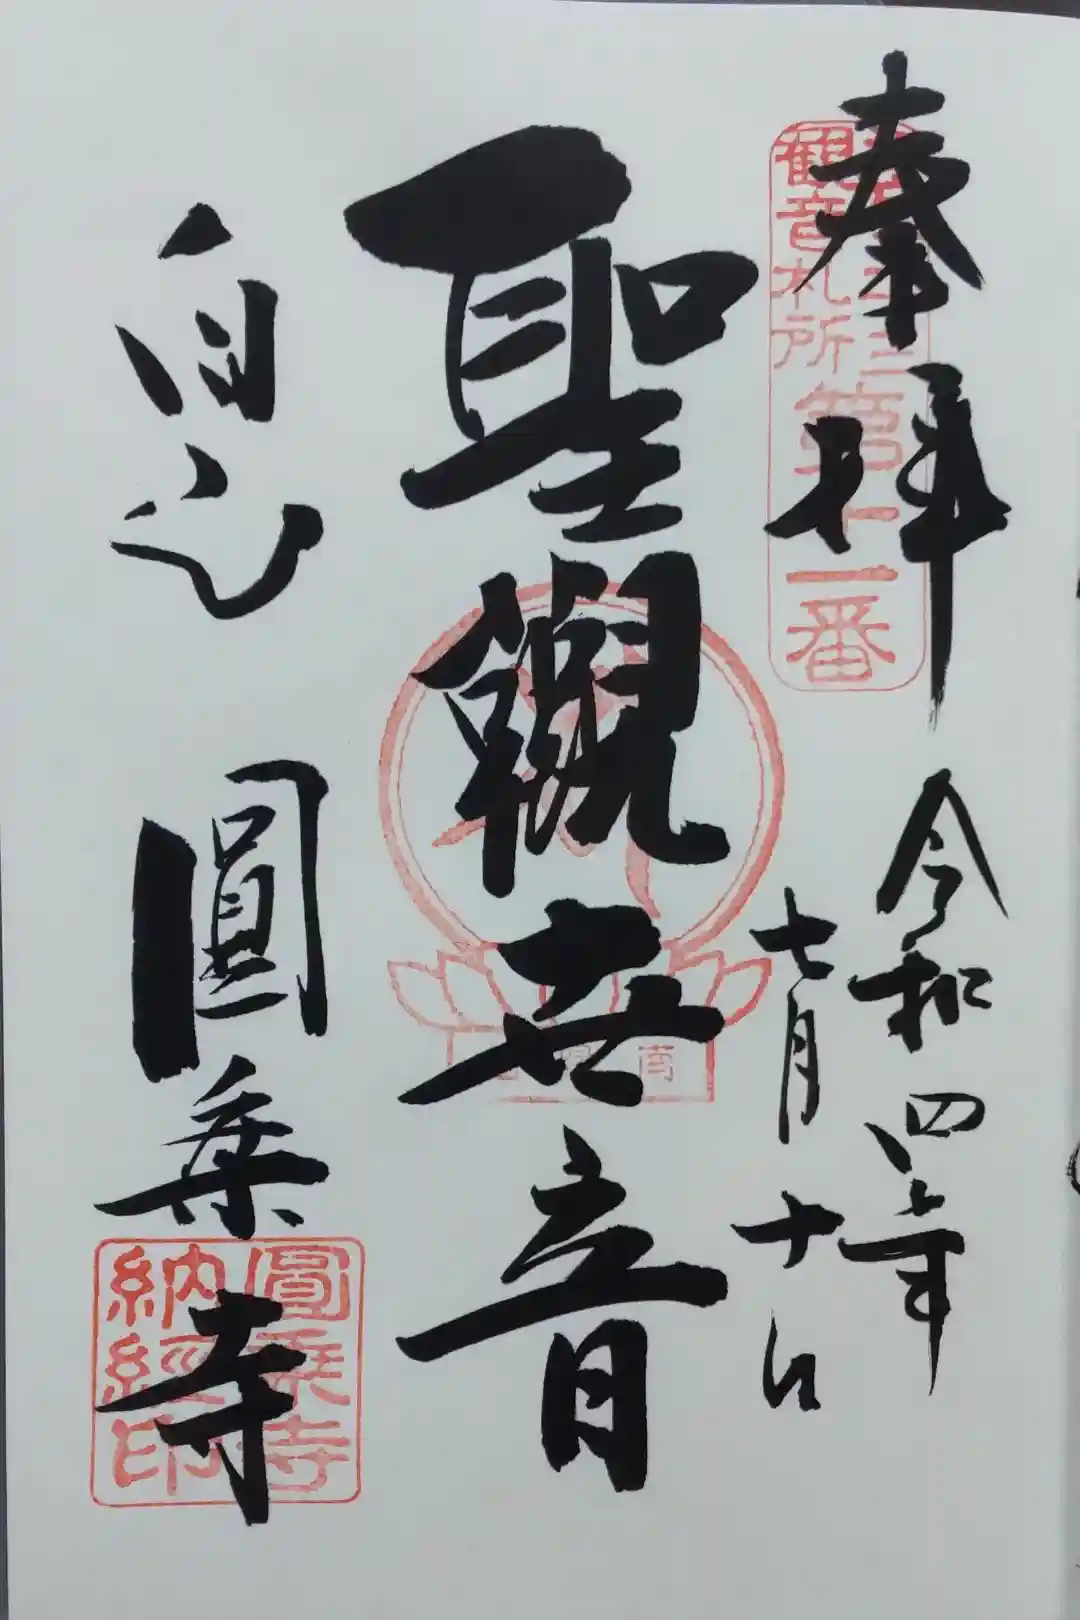 奉拝
令和四年
七月十日
聖觀世音
白山
圓乗寺
観音札所
第十一番
圓乗寺
納經印